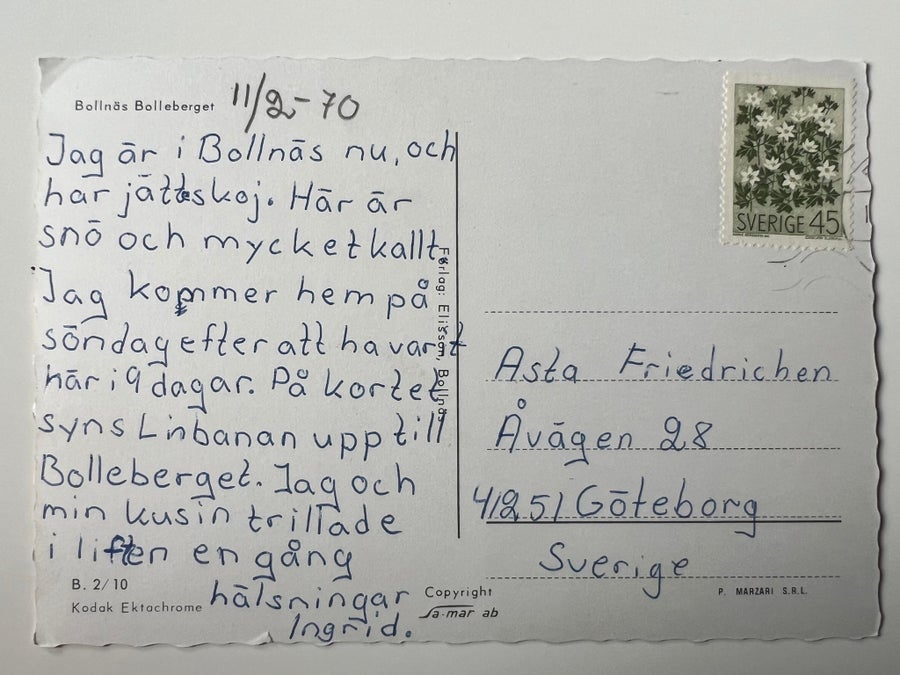 Bollnäs Bolleberget
11/2-70
Jag är i Bollnäs nu, och
har jätteskoj. Här är
snö och mycket kallt.
Jag kommer hem på
söndag efter att ha varit
här i 9 dagar. På kortet
syns Linbanan upp till
Bolleberget. Jag och
min kusin trillade
i liften en gång
hälsningar
Ingrid.
B. 2/10
Kodak Ektachrome
Förlag: Elisson, Bollnäs
Copyright
Sa-mär ab
SVERIGE 45
Asta Friedrichen
Åvägen 28
41251 Göteborg
Sverige
P. MARZARI S.R.L.